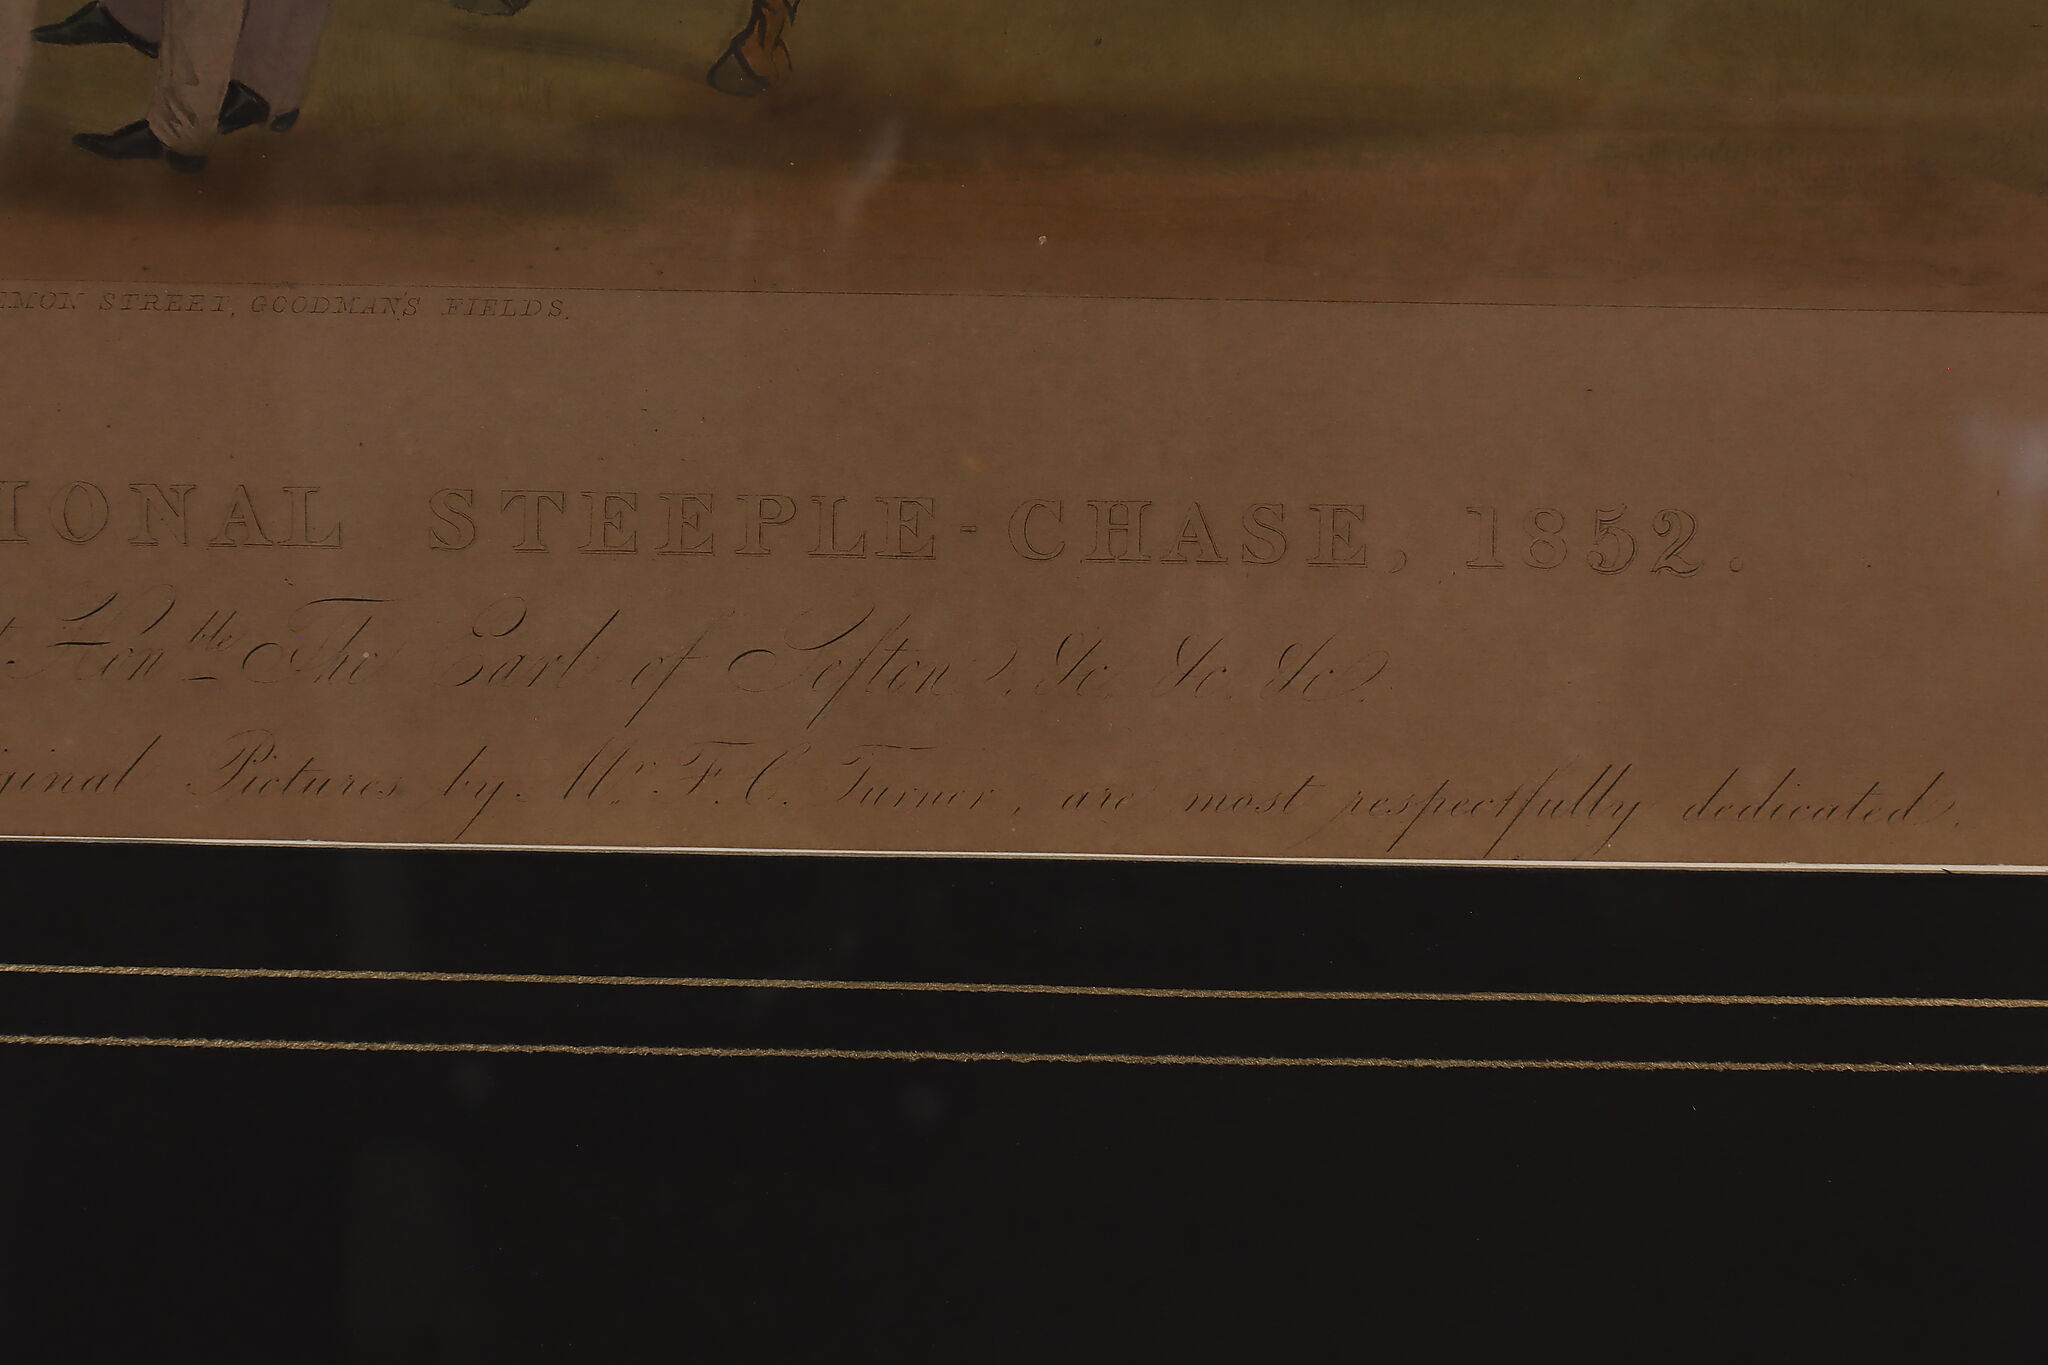 EMON STREET, GOODMAN'S FIELDS.
IONAL STEEPLE-CHASE, 1852.
t Honble The Earl of Sefton, &c. &c. &c.
ginal Pictures by Mr. F. C. Turner, are most respectfully dedicated.